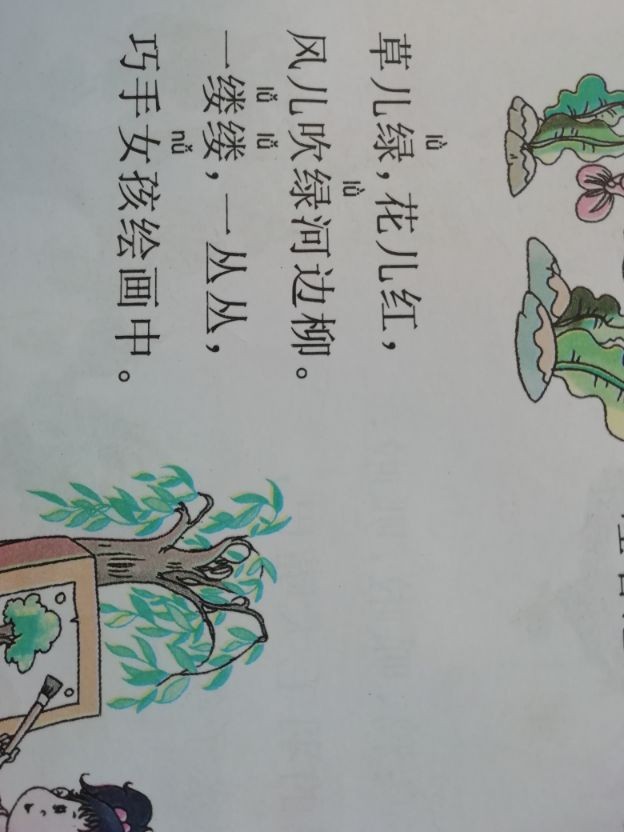 lǜ
草儿绿，花儿红，
lǜ
风儿吹绿河边柳。
lǚ lǚ
一缕缕，一丛丛，
nǚ
巧手女孩绘画中。